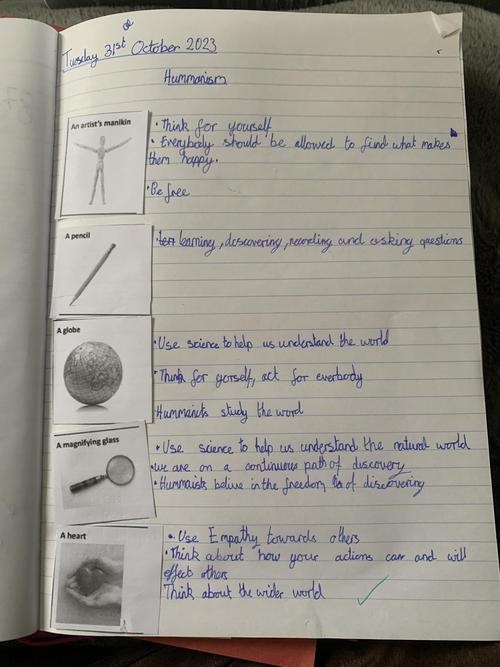 Tuesday 31st October 2023
Hummanism
An artist's manikin
• Think for yourself
• Everybody should be allowed to find what makes
them happy.
• Be free
A pencil
• learning, discovering, recording and asking questions
A globe
• Use science to help us understand the world
• Think for yorself, act for everbody
Hummanists study the word
A magnifying glass
• Use science to help us understand the natural world
• we are on a continuous path of discovery
• Hummaists belive in the freedom of discovering
A heart
• Use Empathy towards others
• Think about how your actions can and will
effect others
Think about the wider world